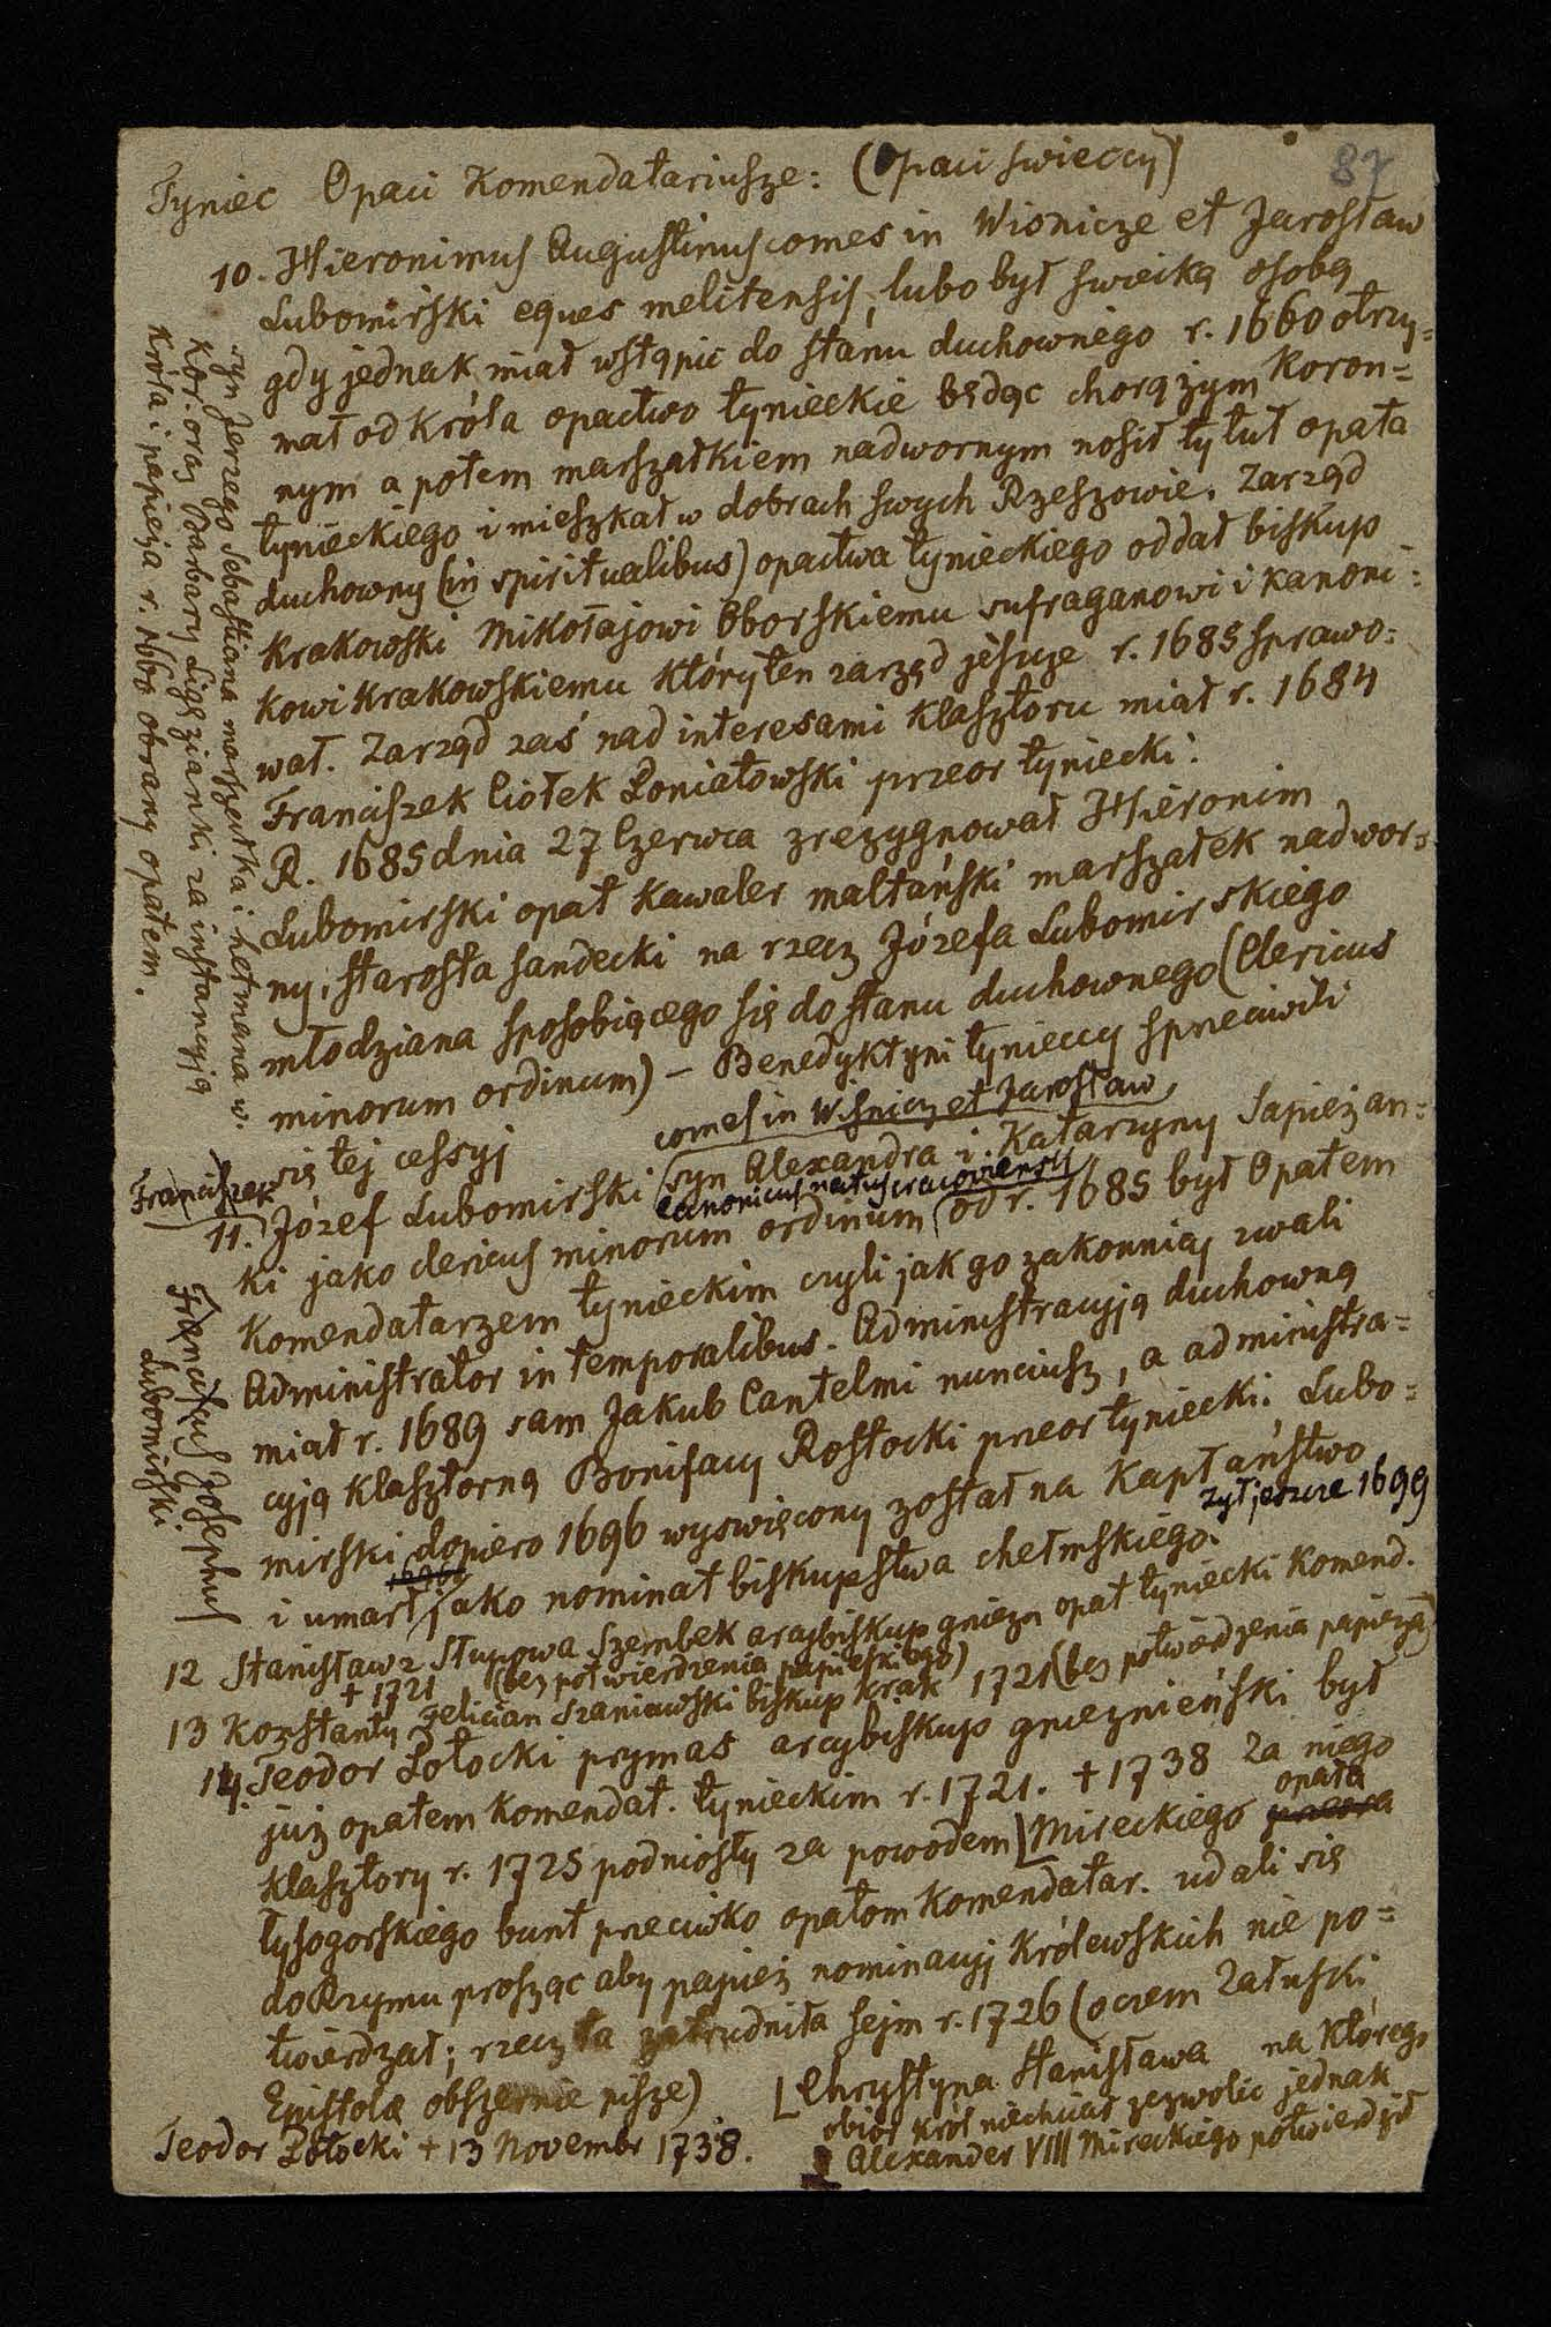 87
Tyniec Opaci Komendatariusze: (Opaci swieccy)
10. Hieronimus Augustinus comes in Wisnicze et Jarosław
Lubomirski eques melitensis, lubo był swieką osobą
gdy jednak miał wstąpić do stanu duchownego r. 1660 otrzy=
mał od króla opactwo tynieckie będąc chorążym Koron=
nym a potem marszałkiem nadwornym nosił tytuł opata
tynieckiego i mieszkał w dobrach swych Rzeszowie. Zarząd
duchowny (in spiritualibus) opactwa tynieckiego oddał biskup
krakowski Mikołajowi Oborskiemu sufraganowi i kanoni=
kowi krakowskiemu który ten zarząd jeszcze r. 1685 sprawo=
wał. Zarząd zaś nad interesami klasztoru miał r. 1684
Franciszek Ciołek Poniatowski przeor tyniecki.
R. 1685 dnia 27 Czerwca zrezygnował Hieronim
Lubomirski opat kawaler maltański marszałek nadwor=
ny, starosta sandecki na rzecz Józefa Lubomirskiego
młodziana sposobiącego się do stanu duchownego (Clericus
minorum ordinum) – Benedyktyni tynieccy sprzeciwili
się tej cessyj
syn Jerzego Sebastiana marszałka i hetmana w.
kor. oraz Barbary Ligęzianki za instancyją
króla i papieża r. 1660 obrany opatem.
comes in Wisnicz et Jarosław
Franciszek
11. Józef Lubomirski (syn Alexandra i Katarzyny Sapieżan=
canonicus natus cracoviensis
ki jako clericus minorum ordinum (od r. 1685 był Opatem
Komendatarzem tynieckim czyli jak go zakonnicy zwali
Administrator in temporalibus. Administracyją duchowną
miał r. 1689 sam Jakub Cantelmi nunciusz, a administra=
cyją klasztorną Bonifacy Rostocki przeor tyniecki. Lubo=
mirski dopiero 1696 wyswięcony został na kapłaństwo
żył jeszcze 1699
i umarł jako nominat biskupstwa chełmskiego.
Franciscus Josephus
Lubomirski
12 Stanisław z Słupowa Szembek arcybiskup gniezn opat tyniecki Komend.
+ 1721 (bez potwierdzenia papieskiego)
13 Konstanty Felician Szaniawski biskup krak 1721 (bez potwierdzenia papieża)
14. Teodor Potocki prymas arcybiskup gnieznieński był
już opatem komendat. tynieckim r. 1721. + 1738 Za niego
klasztory r. 1725 podniosły za powodem [Mireckiego opata
przeora
łysogorskiego bunt przeciwko opatom Komendatar. udali się
do Rzymu prosząc aby papież nominacyj królewskich nie po=
twierdzał; rzecz ta zatrudniła sejm r. 1726 (o czem Załuski
Epistolæ obszernie pisze)
[Chrystyna Stanisława na którego
obiór król niechciał zezwolić jednak
Alexander VIII Mireckiego potwierdził
Teodor Potocki + 13 Novembr 1738.